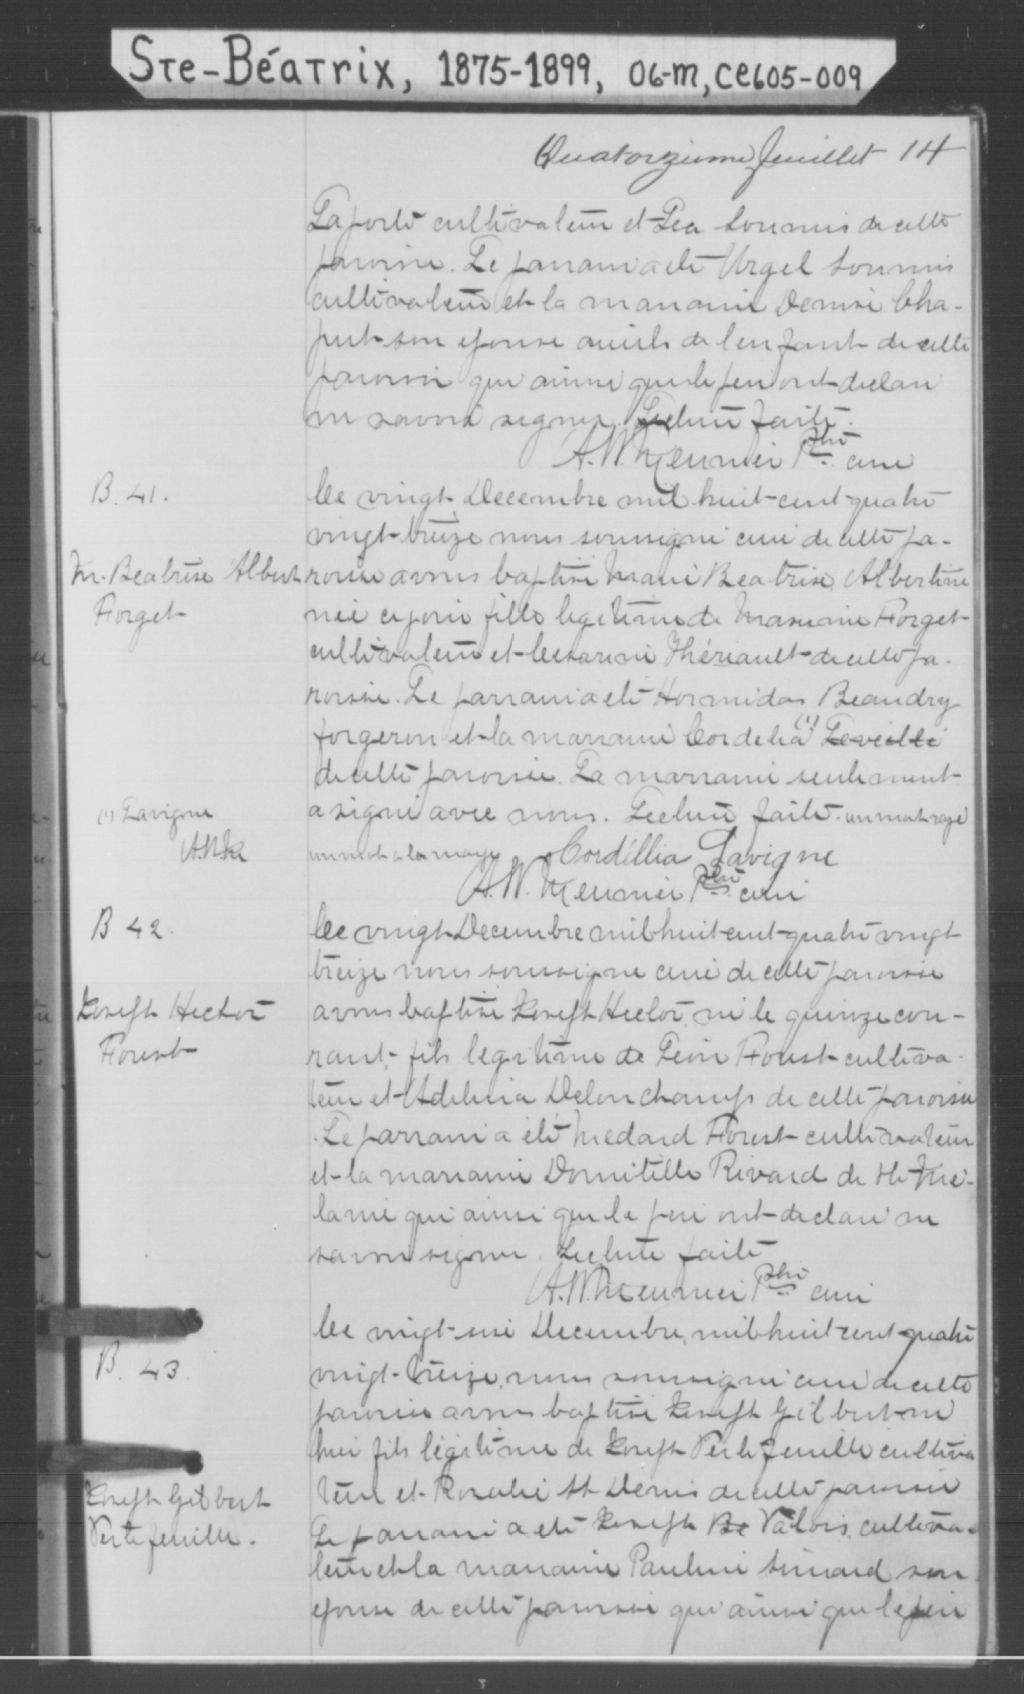 Ste-Béatrix, 1875-1899, 06-M, CE605-009
Quatorzieme feuillet 14
Laporte cultivateur et Léa Loumis de cette
paroisse. Le parrain a été Urgel Loumis
cultivateur et la marraine Denise Cha-
put son epouse aieuls de l'enfant de cette
paroisse qui ainsi que le pere ont declaré
ne savoir signer. Lecture faite.
A. W. Meunier Ptre curé
B. 41.
M. Beatrise Albert
Forget
Ce vingt Decembre mil huit cent quatre
vingt-treize nous soussigné curé de cette pa-
roisse avons baptisé Marie Beatrise Albertine
née ce jour fille legitime de Maxime Forget
cultivateur et Cesarine Thériault de cette pa-
roisse. Le parrain a été Hormidas Beaudry
forgeron et la marraine Cordelia (1) Leveillé
de cette paroisse. La marraine seulement
a signé avec nous. Lecture faite. un mot rayé
un mot a la marge Cordéllia Lavigne
(1) Lavigne
A. W. Meunier Ptre curé
B 42.
Joseph Hector
Forest
Ce vingt Decembre mil huit cent quatre vingt
treize nous soussigné curé de cette paroisse
avons baptisé Joseph Hector né le quinze cou-
rant, fils legitime de Léon Forest cultiva-
teur et Adelina Delonchamps de cette paroisse
. Le parrain a été Medard Forest cultivateur
et la marraine Domitille Rivard de Ste Mé-
lanie qui ainsi que le pere ont declaré ne
savoir signer. Lecture faite
A. W. Meunier Ptre curé
B. 43.
Joseph Gilbert
Pertefeuille.
Ce vingt-six Decembre mil huit cent quatre
vingt-treize, nous soussigné curé de cette
paroisse avons baptisé Joseph Gilbert né
hier fils légitime de Joseph Pertefeuille cultiva
teur et Rosalie St Denis de cette paroisse
Le parrain a été Joseph Valois, cultiva-
teur et la marraine Pauline Simard son
epouse de cette paroisse qui ainsi que le père